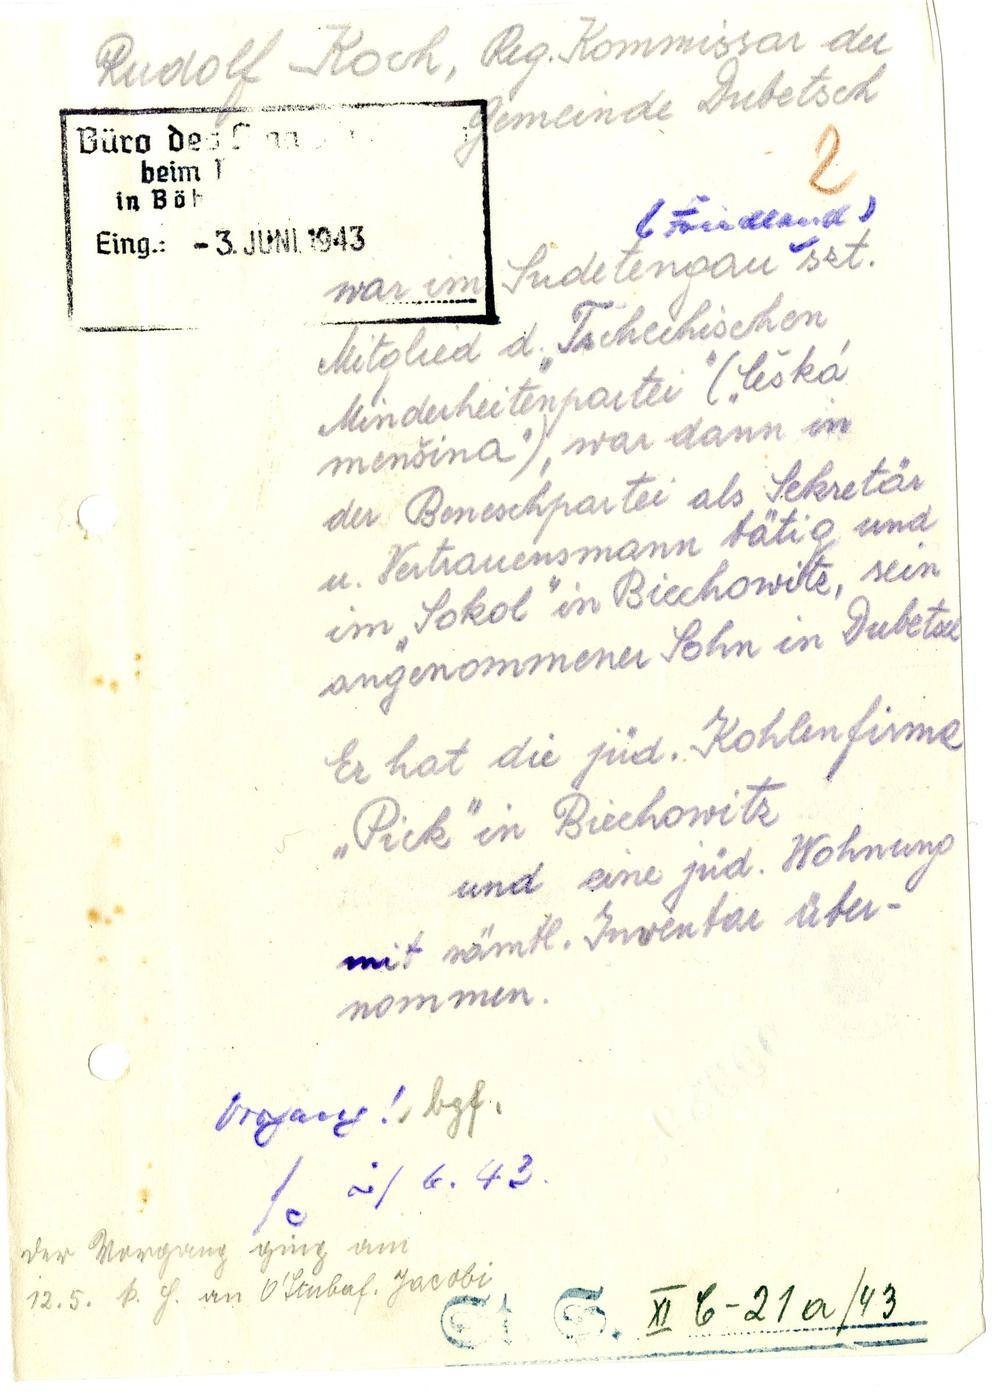 Rudolf Koch, Reg. Kommissar der
Gemeinde Dubetsch
Büro des
beim
in Böh
Eing.: -3. JUNI 1943
2
(Friedland)
war im Sudetengau szt.
Mitglied d. „Tschechischen
Minderheitenpartei" („česká
menšina"), war dann in
der Beneschpartei als Sekretär
u. Vertrauensmann tätig und
im „Sokol" in Biechowitz, sein
angenommener Sohn in Dubetsch
Er hat die jüd. Kohlenfirma
„Pick" in Biechowitz
und eine jüd. Wohnung
mit sämtl. Inventar über-
nommen.
Vorgang! bgf.
2/6. 43.
der Vorgang ging am
12.5. k. H. an O'Stubaf. Jacobi
St. S. XI C-21a/43